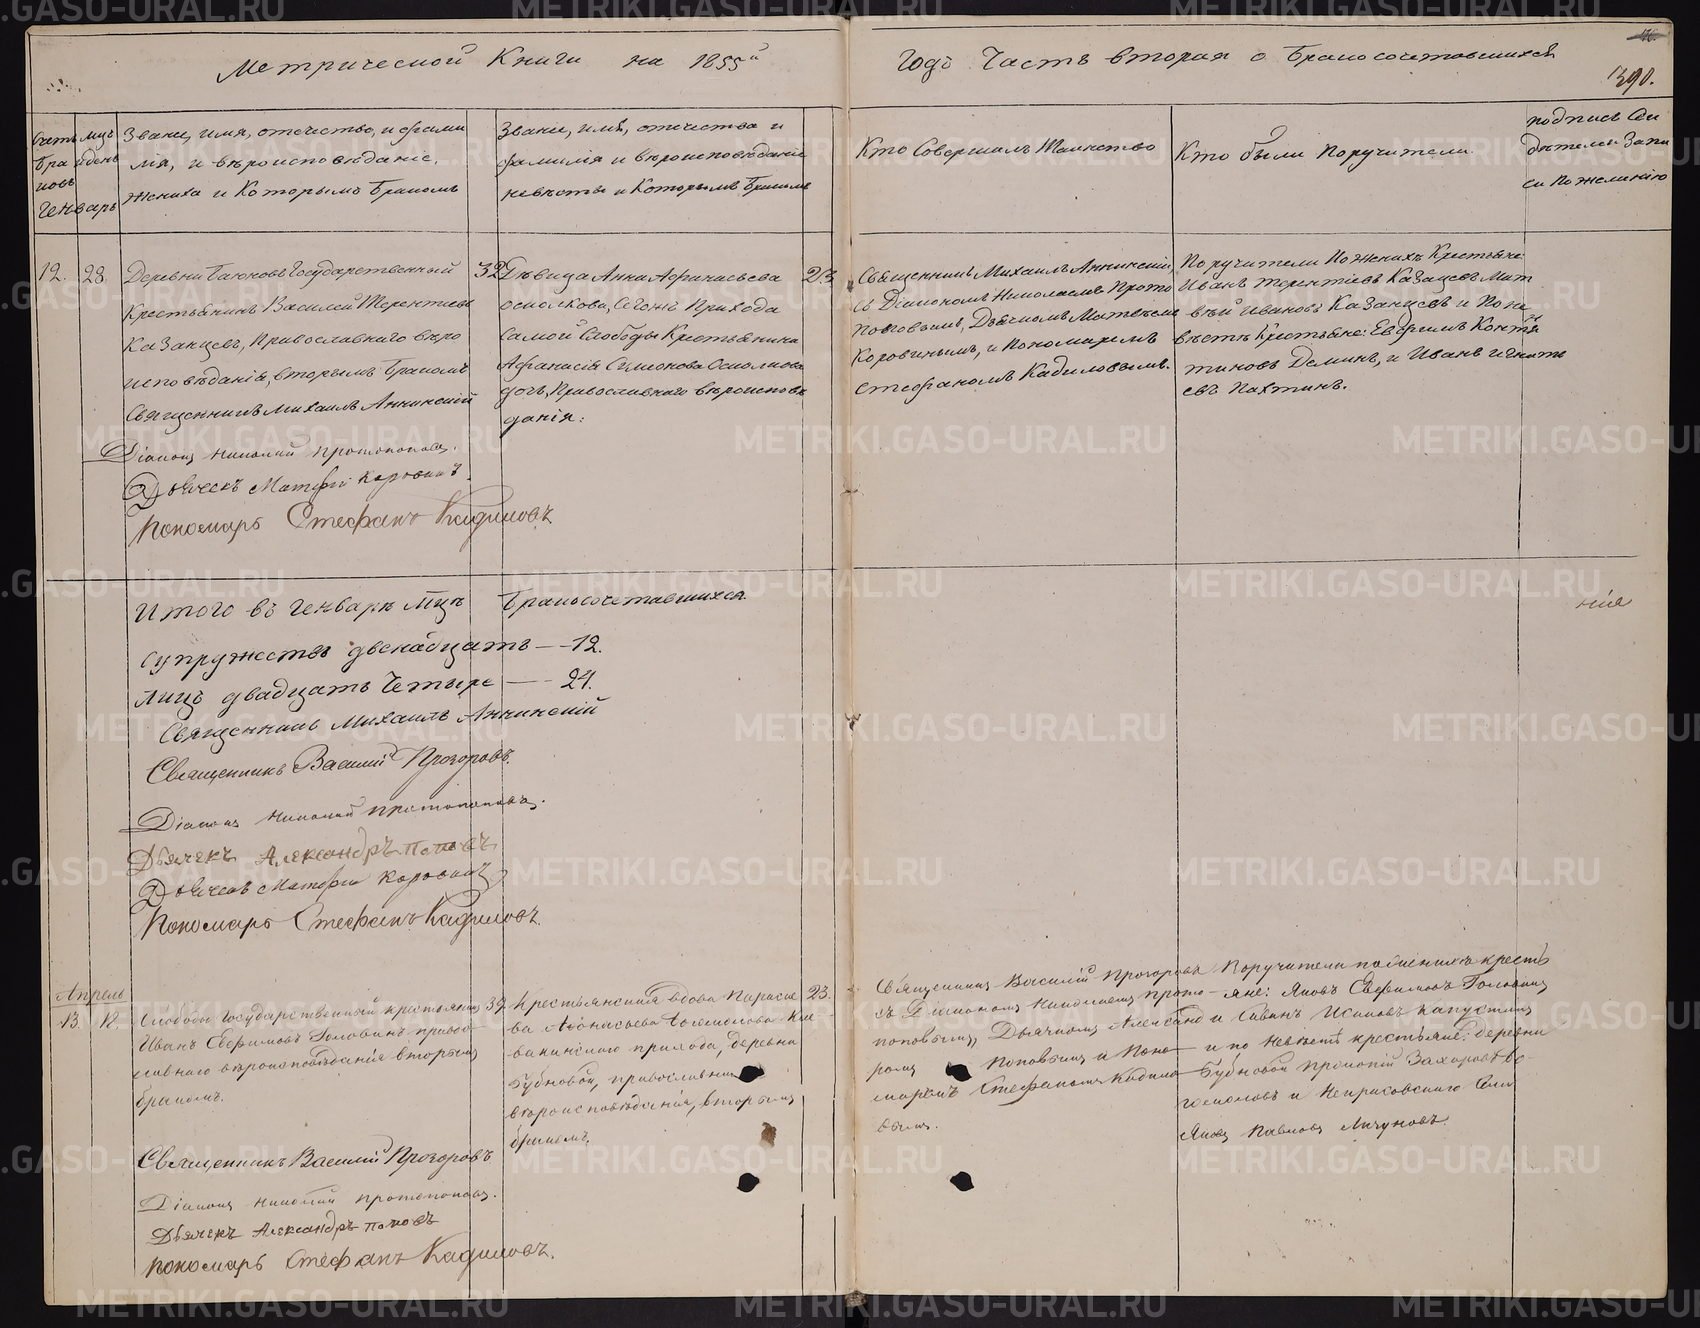 Метрической Книги на 1855й
Годъ Часть вторая о бракосочетавшихся
1390.
Счетъ браковъ
мцъ и день
Генварь
Званіе, имя, отечество, и фами
лія, и вѣроисповѣданіе,
жениха и Которымъ бракомъ
Званіе, имя, отечество и
фамилія и вѣроисповѣданіе
невѣсты и Которымъ бракомъ
Кто Совершалъ Таинство
Кто были Поручители
подпись Сви
дѣтелей Запи
си по желанію
12. 28.
Деревни Государственный
Крестьянинъ Василей Терентіевъ
Казанцевъ, Православнаго вѣро
исповѣданія, вторымъ бракомъ
Священникъ Михаилъ Аннинскій
Діаконъ Николай Протопоповъ.
Дьячекъ Матфей Коровинъ.
Пономарь Стефанъ Кадиловъ
32
Дѣвица Анна Афанасьева
Осколкова, Сегоже Прихода
Самой Слободы Крестьянина
Афанасія Семенова Осколкова
дочь, Православнаго вѣроисповѣ
данія:
23
Священникъ Михаилъ Аннинскій,
Съ Діакономъ Николаемъ Прото
поповымъ, Дьячкомъ Матвѣемъ
Коровинымъ, и Пономаремъ
Стефаномъ Кадиловымъ.
Поручители По женихѣ Крестьяне
Иванъ Терентіевъ Казанцевъ Мат
вѣй Ивановъ Казанцевъ и По не
вѣстѣ Крестьяне: Евфимъ Конста
тиновъ Деминъ, и Иванъ Игнать
евъ Пахтинъ.
Итого въ Генварѣ Мцѣ Бракосочетавшихся
Супружествъ двенадцать — 12.
Лицъ двадцать Четыре — 24.
Священникъ Михаилъ Аннинскій
Священникъ Василій Прозоровъ.
Діаконъ Николай Протопоповъ.
Дьячекъ Александръ Поповъ
Дьячекъ Матфей Коровинъ
Пономарь Стефанъ Кадиловъ.
нія
Апрель
13. 12.
Слободы Государственный крестьянинъ
Иванъ Евфимовъ Головинъ, право
славнаго вѣроисповѣданія вторымъ
бракомъ.
Священникъ Василій Прозоровъ
Діаконъ Николай Протопоповъ.
Дьячекъ Александръ Поповъ
Пономарь Стефанъ Кадиловъ.
39
Крестьянская вдова Параске
ва Афонасьева Богомолова
прихода, деревни
Бубновой, православнаго
вѣроисповѣданія, вторымъ
бракомъ.
23.
Священникъ Василій Прозоровъ
съ Діакономъ Николаемъ Прото
поповымъ, Дьячкомъ Александ
ромъ Поповымъ и Поно
маремъ Стефаномъ Кадило
вымъ.
Поручители по женихѣ кресть
яне: Яковъ Евфимовъ Головинъ
и Савинъ Исаковъ Капустинъ
и по невѣстѣ крестьяне: деревни
Бубновой Прокопій Захаровъ Бо
гомоловъ и Некрасовскаго Села
Яковъ Павловъ Личуновъ.
METRIKI.GASO-URAL.RU